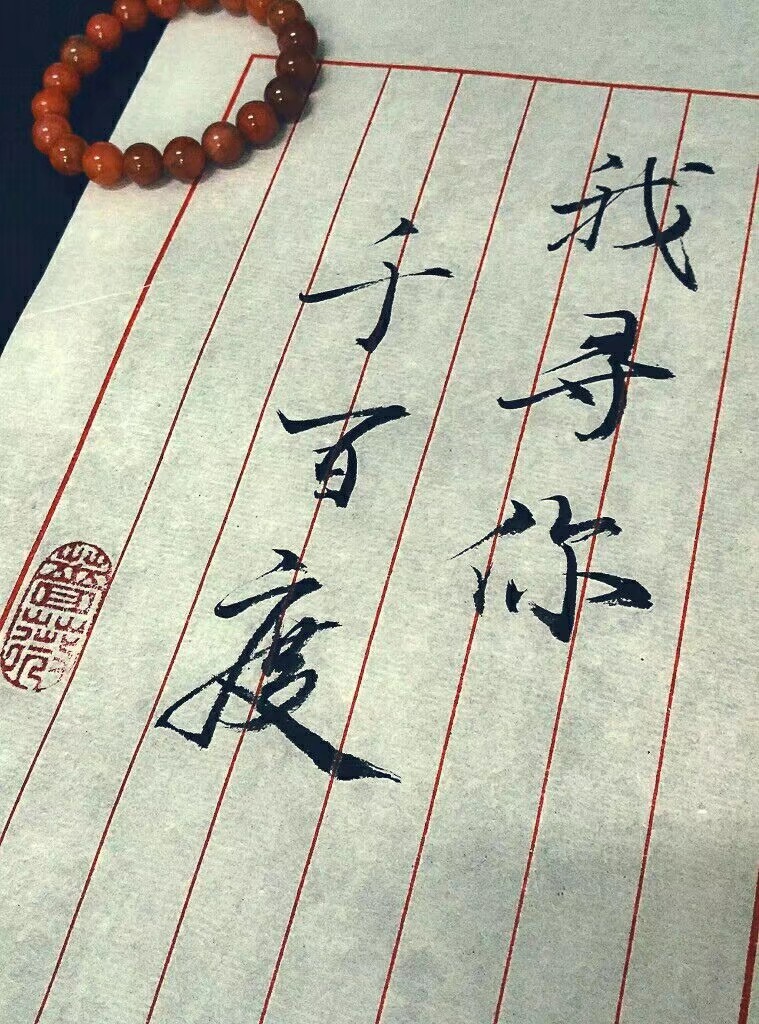 我寻你
千百度